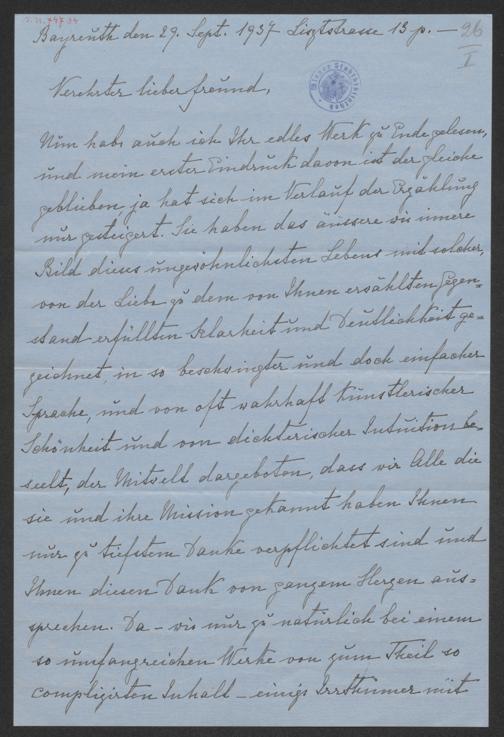 Bayreuth den 29. Sept. 1937 Lisztstrasse 13 p. —
26
I
Wiener Stadtbibliothek
Verehrter lieber Freund,
Nun habe auch ich Ihr edles Werk zu Ende gelesen,
und mein erster Eindruck davon ist der gleiche
geblieben, ja hat sich im Verlauf der Erzählung
nur gesteigert. Sie haben das äussere wie innere
Bild dieses ungewöhnlichsten Lebens mit solcher,
von der Liebe zu dem von Ihnen erzählten Gegen=
stand erfüllten Klarheit und Deutlichkeit ge=
zeichnet, in so beschwingter und doch einfacher
Sprache, und von oft wahrhaft künstlerischer
Schönheit und von dichterischer Intuition be=
seelt, der Mitwelt dargeboten, dass wir Alle die
sie und ihre Mission gekannt haben Ihnen
nur zu tiefstem Danke verpflichtet sind und
Ihnen diesen Dank von ganzem Herzen aus=
sprechen. Da – wie nur zu natürlich bei einem
so umfangreichen Werke von zum Theil so
complizirten Inhalt – einige Irrthümer mit